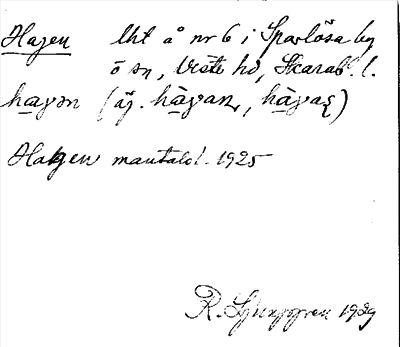 Hagen lht å nr 6 i Sparlösa by
ö sn, Viste hd, Skarab. l.
hagən (äg. hàgan, hàgas)
Hagen mantalsl. 1925
R. Ljunggren 1939